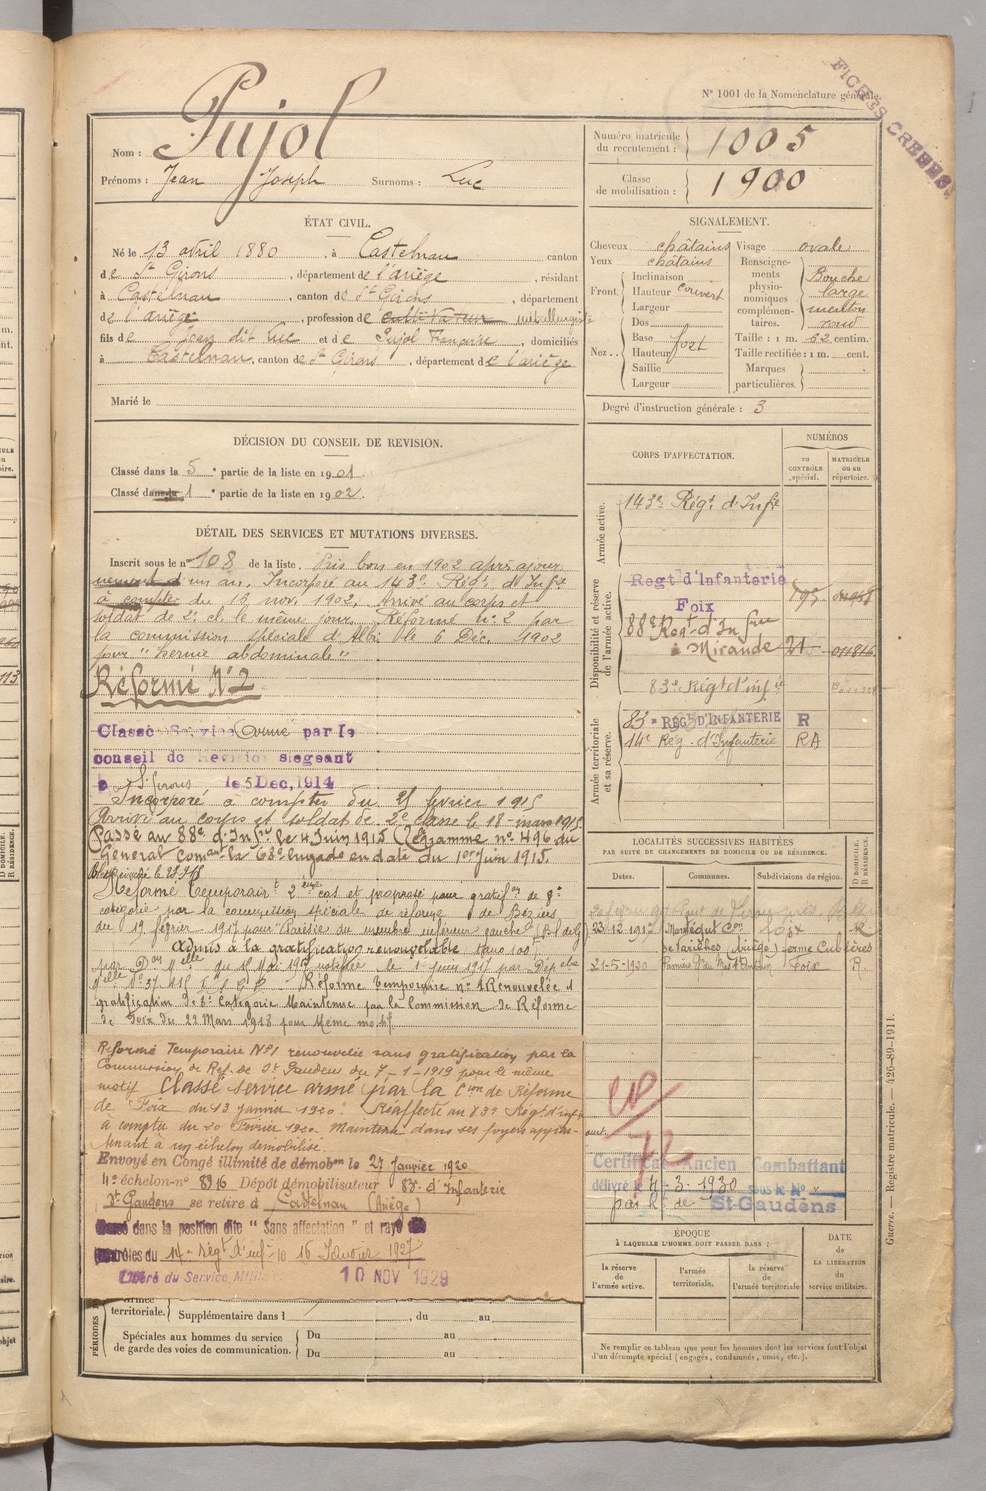 N° 1001 de la Nomenclature générale.
FICHES CREEES
Nom : Pujol
Prénoms : Jean Joseph Surnoms : Luc
Numéro matricule du recrutement : 1005
Classe de mobilisation : 1900
ÉTAT CIVIL.
Né le 13 avril 1880, à Castelnau canton
de St Girons, département de l'ariège, résidant
à Castelnau, canton de St Girons, département
de l'ariège, profession de cultivateur métallurgiste
fils de Jean dit Luc et de Pujol Françoise, domiciliés
à Castelnau, canton de St Girons, département de l'ariège
Marié le
SIGNALEMENT.
Cheveux châtains
Yeux châtains
Front. Inclinaison
Hauteur couvert
Largeur
Nez. Dos
Base fort
Hauteur
Saillie
Largeur
Visage ovale
Renseignements physionomiques complémentaires. Bouche large menton rond
Taille : 1 m. 62 centim.
Taille rectifiée : 1 m. cent.
Marques particulières.
Degré d'instruction générale : 3
DÉCISION DU CONSEIL DE REVISION.
Classé dans la 5e partie de la liste en 1901.
Classé dans la 1e partie de la liste en 1902.
DÉTAIL DES SERVICES ET MUTATIONS DIVERSES.
Inscrit sous le n° 108 de la liste. Pris bon en 1902 après ajour
nement d'un an. Incorporé au 143e Régt d'Infie
à compter du 16 nov. 1902. Arrivé au corps et
soldat de 2e cl. le même jour. Réformé n° 2 par
la commission spéciale d'Albi le 6 Déc. 1902
pour "hernie abdominale"
Réformé N°2
Classé Service Armé par le
conseil de Revision siégeant
à St Girons le 5 Dec, 1914
Incorporé à compter du 25 février 1915
Arrivé au corps et soldat de 2e classe le 18 mars 1915
Passé au 88e d'Infie le 4 Juin 1915 (Tégramme n° 496 du
Général Comant la 63e brigade en date du 1er Juin 1915.
Réformé temporairt 2ème cas et proposé pour gratifon de 8e
catégorie par la commission spéciale de réforme de Béziers
du 19 février 1917 pour Parésie du membre inférieur gauche
Admis à la gratification renouvelable
Réforme Temporaire n° 1 Renouvelée et
gratification de 8e Catégorie Maintenue par la Commission de Réforme
de Foix du 22 Mars 1918 pour Même motif.
Réformé Temporaire N°1 renouvelée sans gratification par la
Commission de Ref. de St Gaudens du 7-1-1919 pour le même
motif Classé service armé par la Cion de Réforme
de Foix du 13 Janvier 1920. Réaffecté au 83e Régt d'infie
à compter du 20 Février 1920. Maintenu dans ses foyers appar-
tenant à un échelon démobilisé.
Envoyé en Congé illimité de démobon le 27 Janvier 1920
4e échelon-n° 8916 Dépôt démobilisateur 83e d'Infanterie
St Gaudens se retire à Castelnau (Ariège)
dans la position dite "Sans affectation" et rayé
contrôles du 14e Régt d'inf le 16 Janvier 1927
Libéré du Service Militaire 10 NOV 1929
PÉRIODES
Armée territoriale. Supplémentaire dans l , du au
Spéciales aux hommes du service de garde des voies de communication. Du au
Du au
CORPS D'AFFECTATION.
NUMÉROS
DU CONTRÔLE spécial.
MATRICULE OU AU RÉPERTOIRE.
Armée active.
143e Régt d'Infie
Disponibilité et réserve de l'armée active.
Regt d'Infanterie
Foix
88e Régt d'Infrie
à Mirande 21 011816
83e Régt d'infie
Armée territoriale et sa réserve.
83e REGt D'INFANTERIE R
14e Rég. d'Infanterie RA
LOCALITÉS SUCCESSIVES HABITÉES
PAR SUITE DE CHANGEMENTS DE DOMICILE OU DE RÉSIDENCE.
Dates. Communes. Subdivisions de région.
D DOMICILE. R RÉSIDENCE.
23-12-1917 Montégut Con Foix R
de Varilhes (Ariège) ferme Cubières
21-5-1920 Pamiers Foix R
Certificat Ancien Combattant
délivré le 4-3-1930 sous le N°
par le de St-Gaudens
72
ÉPOQUE
À LAQUELLE L'HOMME DOIT PASSER DANS :
la réserve de l'armée active.
l'armée territoriale.
la réserve de l'armée territoriale
DATE de LA LIBÉRATION du service militaire.
Ne remplir ce tableau que pour les hommes dont les services font l'objet
d'un décompte spécial (engagés, condamnés, omis, etc.).
Guerre. — Registre matricule. — 426-89-1911.